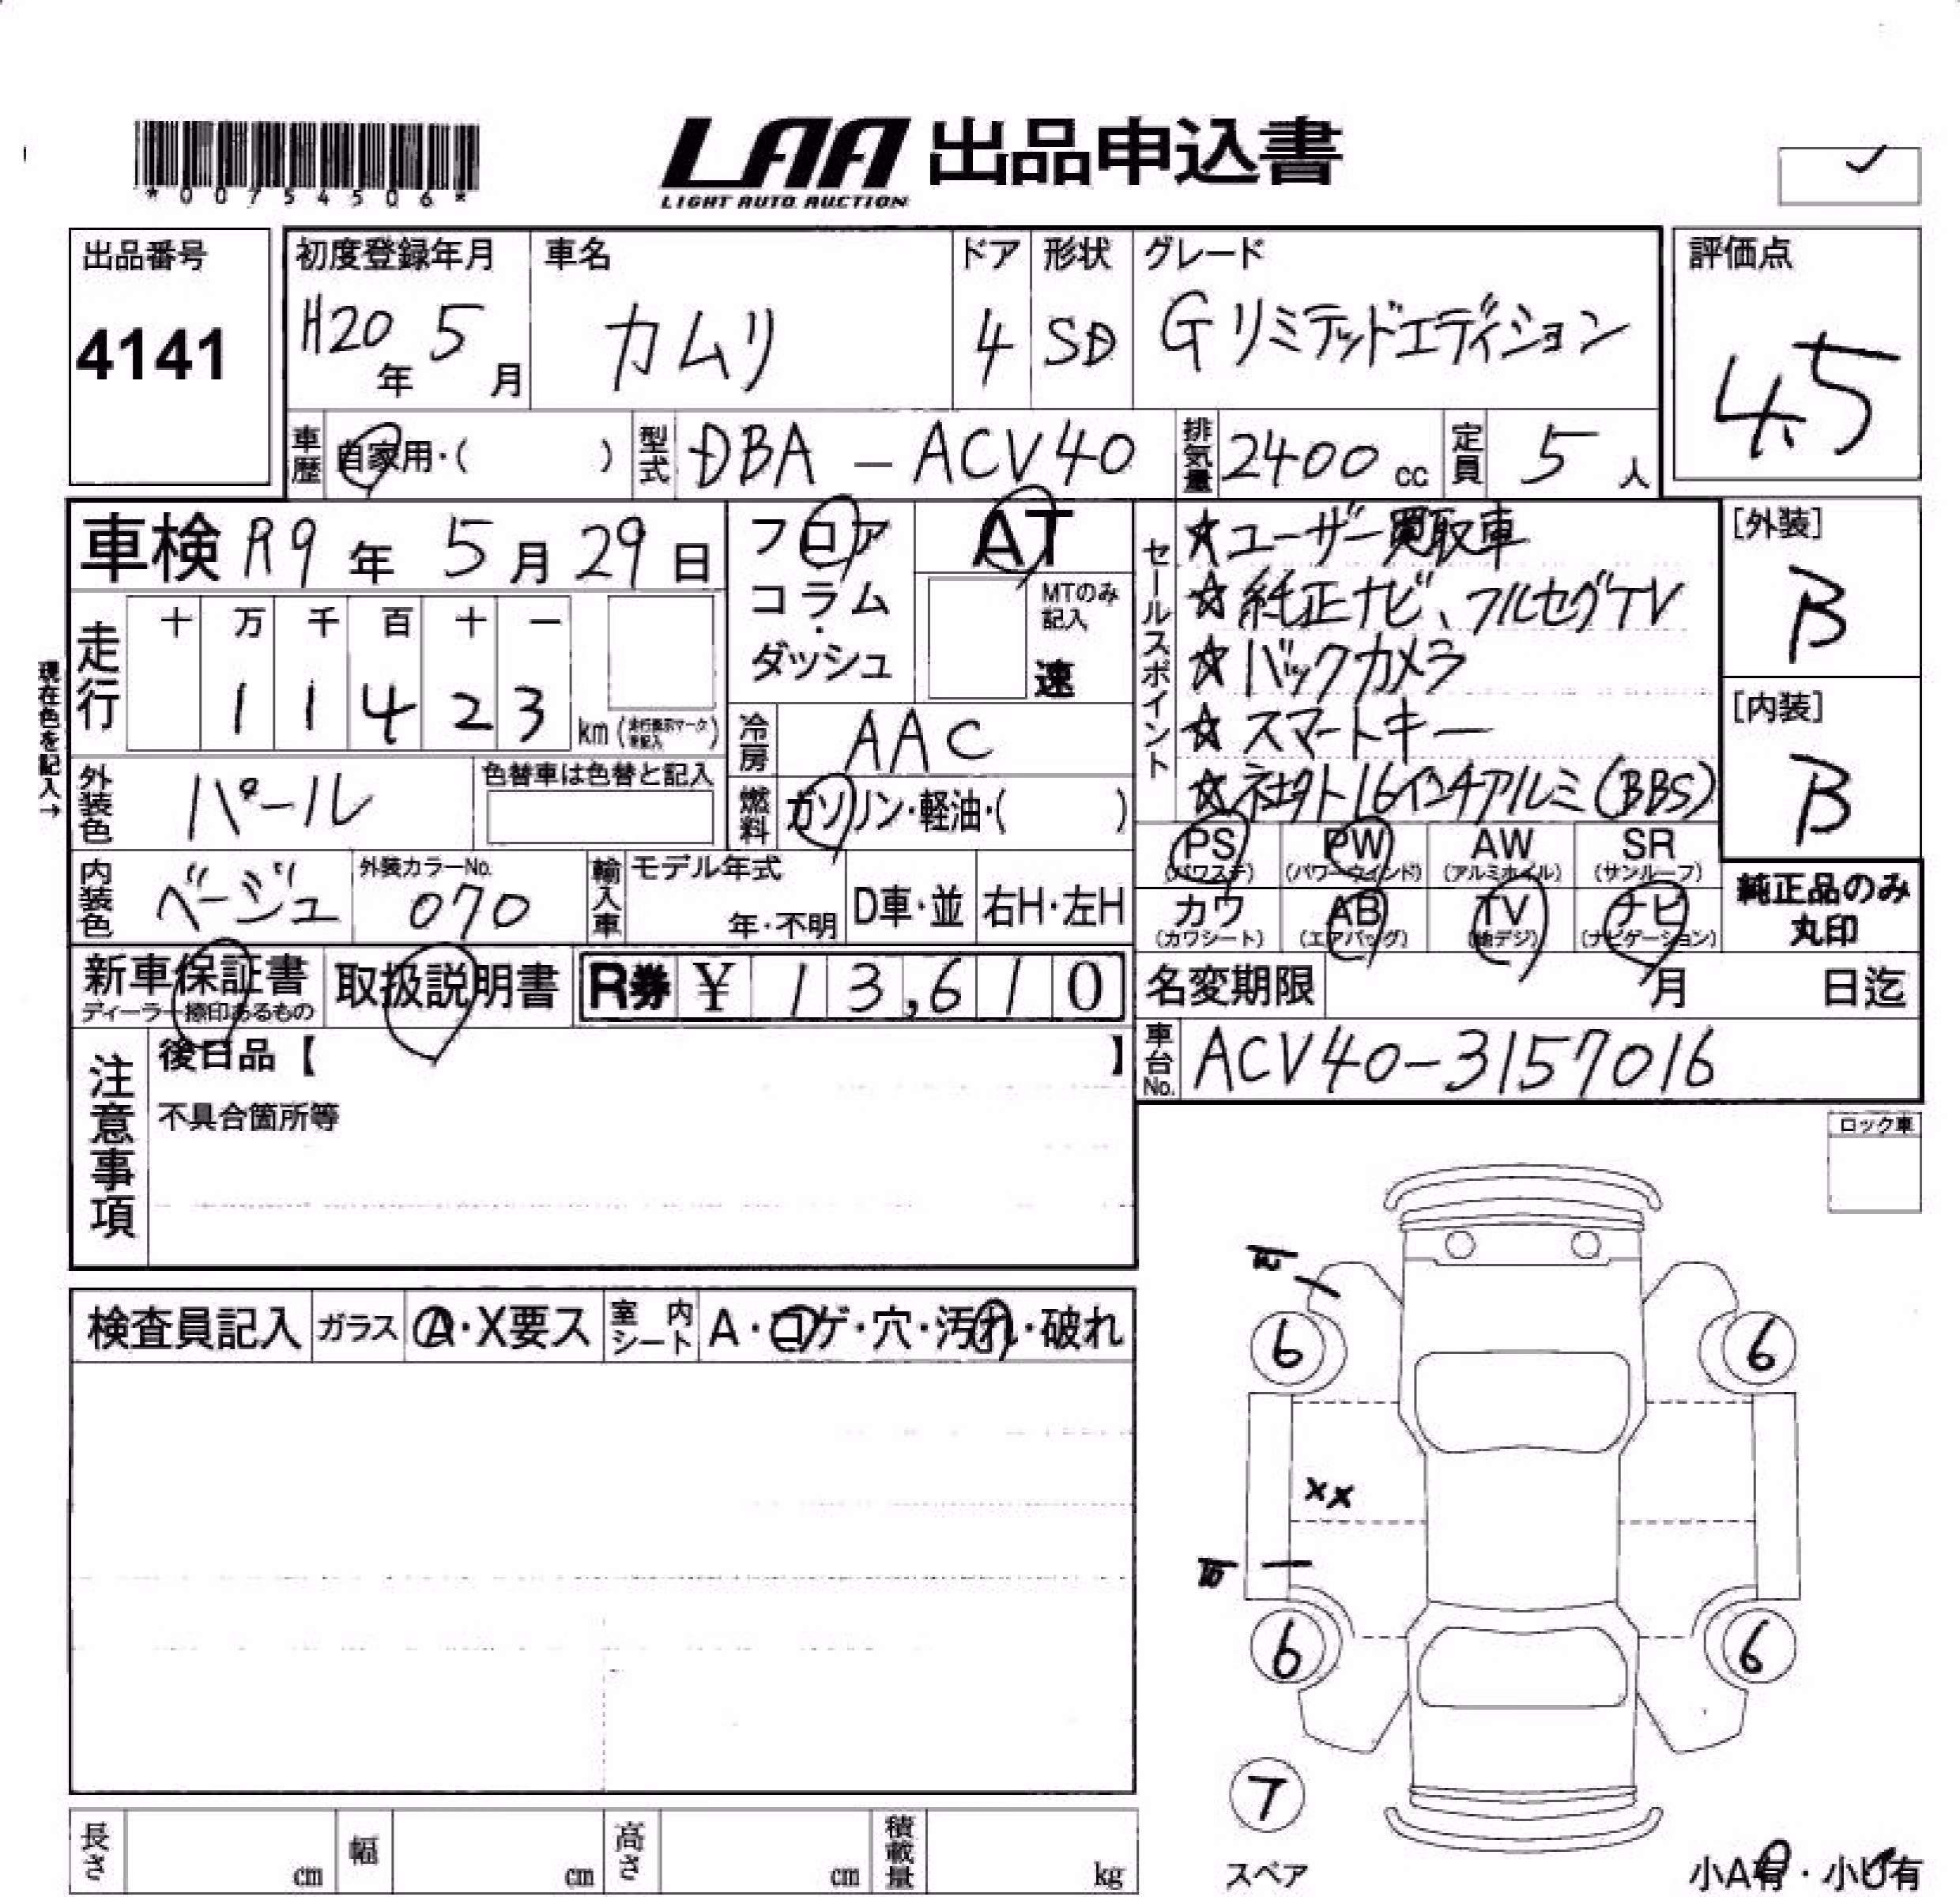 LAA 出品申込書
LIGHT AUTO AUCTION
*00754506*
出品番号
4141
初度登録年月
H20年 5月
車名
カムリ
ドア
4
形状
SD
グレード
Gリミテッドエディション
評価点
4.5
車歴 自家用・( )
型式 DBA-ACV40
排気量 2400cc
定員 5人
車検 R9年 5月 29日
フロア・コラム・ダッシュ
AT
MTのみ記入
速
現在色を記入→
走行
十 万 千 百 十 一
1 1 4 2 3
km
冷房 AAC
外装色 パール
色替車は色替と記入
燃料 ガソリン・軽油・( )
内装色 ベージュ
外装カラーNo.
070
輸入車 モデル年式
年・不明
D車・並
右H・左H
セールスポイント
☆ユーザー買取車
☆純正ナビ、フルセグTV
☆バックカメラ
☆スマートキー
☆社外16インチアルミ(BBS)
[外装]
B
[内装]
B
PS (パワステ)
PW (パワーウインド)
AW (アルミホイル)
SR (サンルーフ)
カワ (カワシート)
AB (エアバッグ)
TV (地デジ)
ナビ (ナビゲーション)
純正品のみ
丸印
新車保証書
ディーラー捺印あるもの
取扱説明書
R券 ¥13,610
名変期限 月 日迄
車台No. ACV40-3157016
注意事項
後日品【 】
不具合箇所等
ロック車
検査員記入
ガラス A・X要ス
室内シート A・コゲ・穴・汚れ・破れ
6
6
XX
6
6
T
スペア
小A有・小U有
長さ cm
幅 cm
高さ cm
積載量 kg